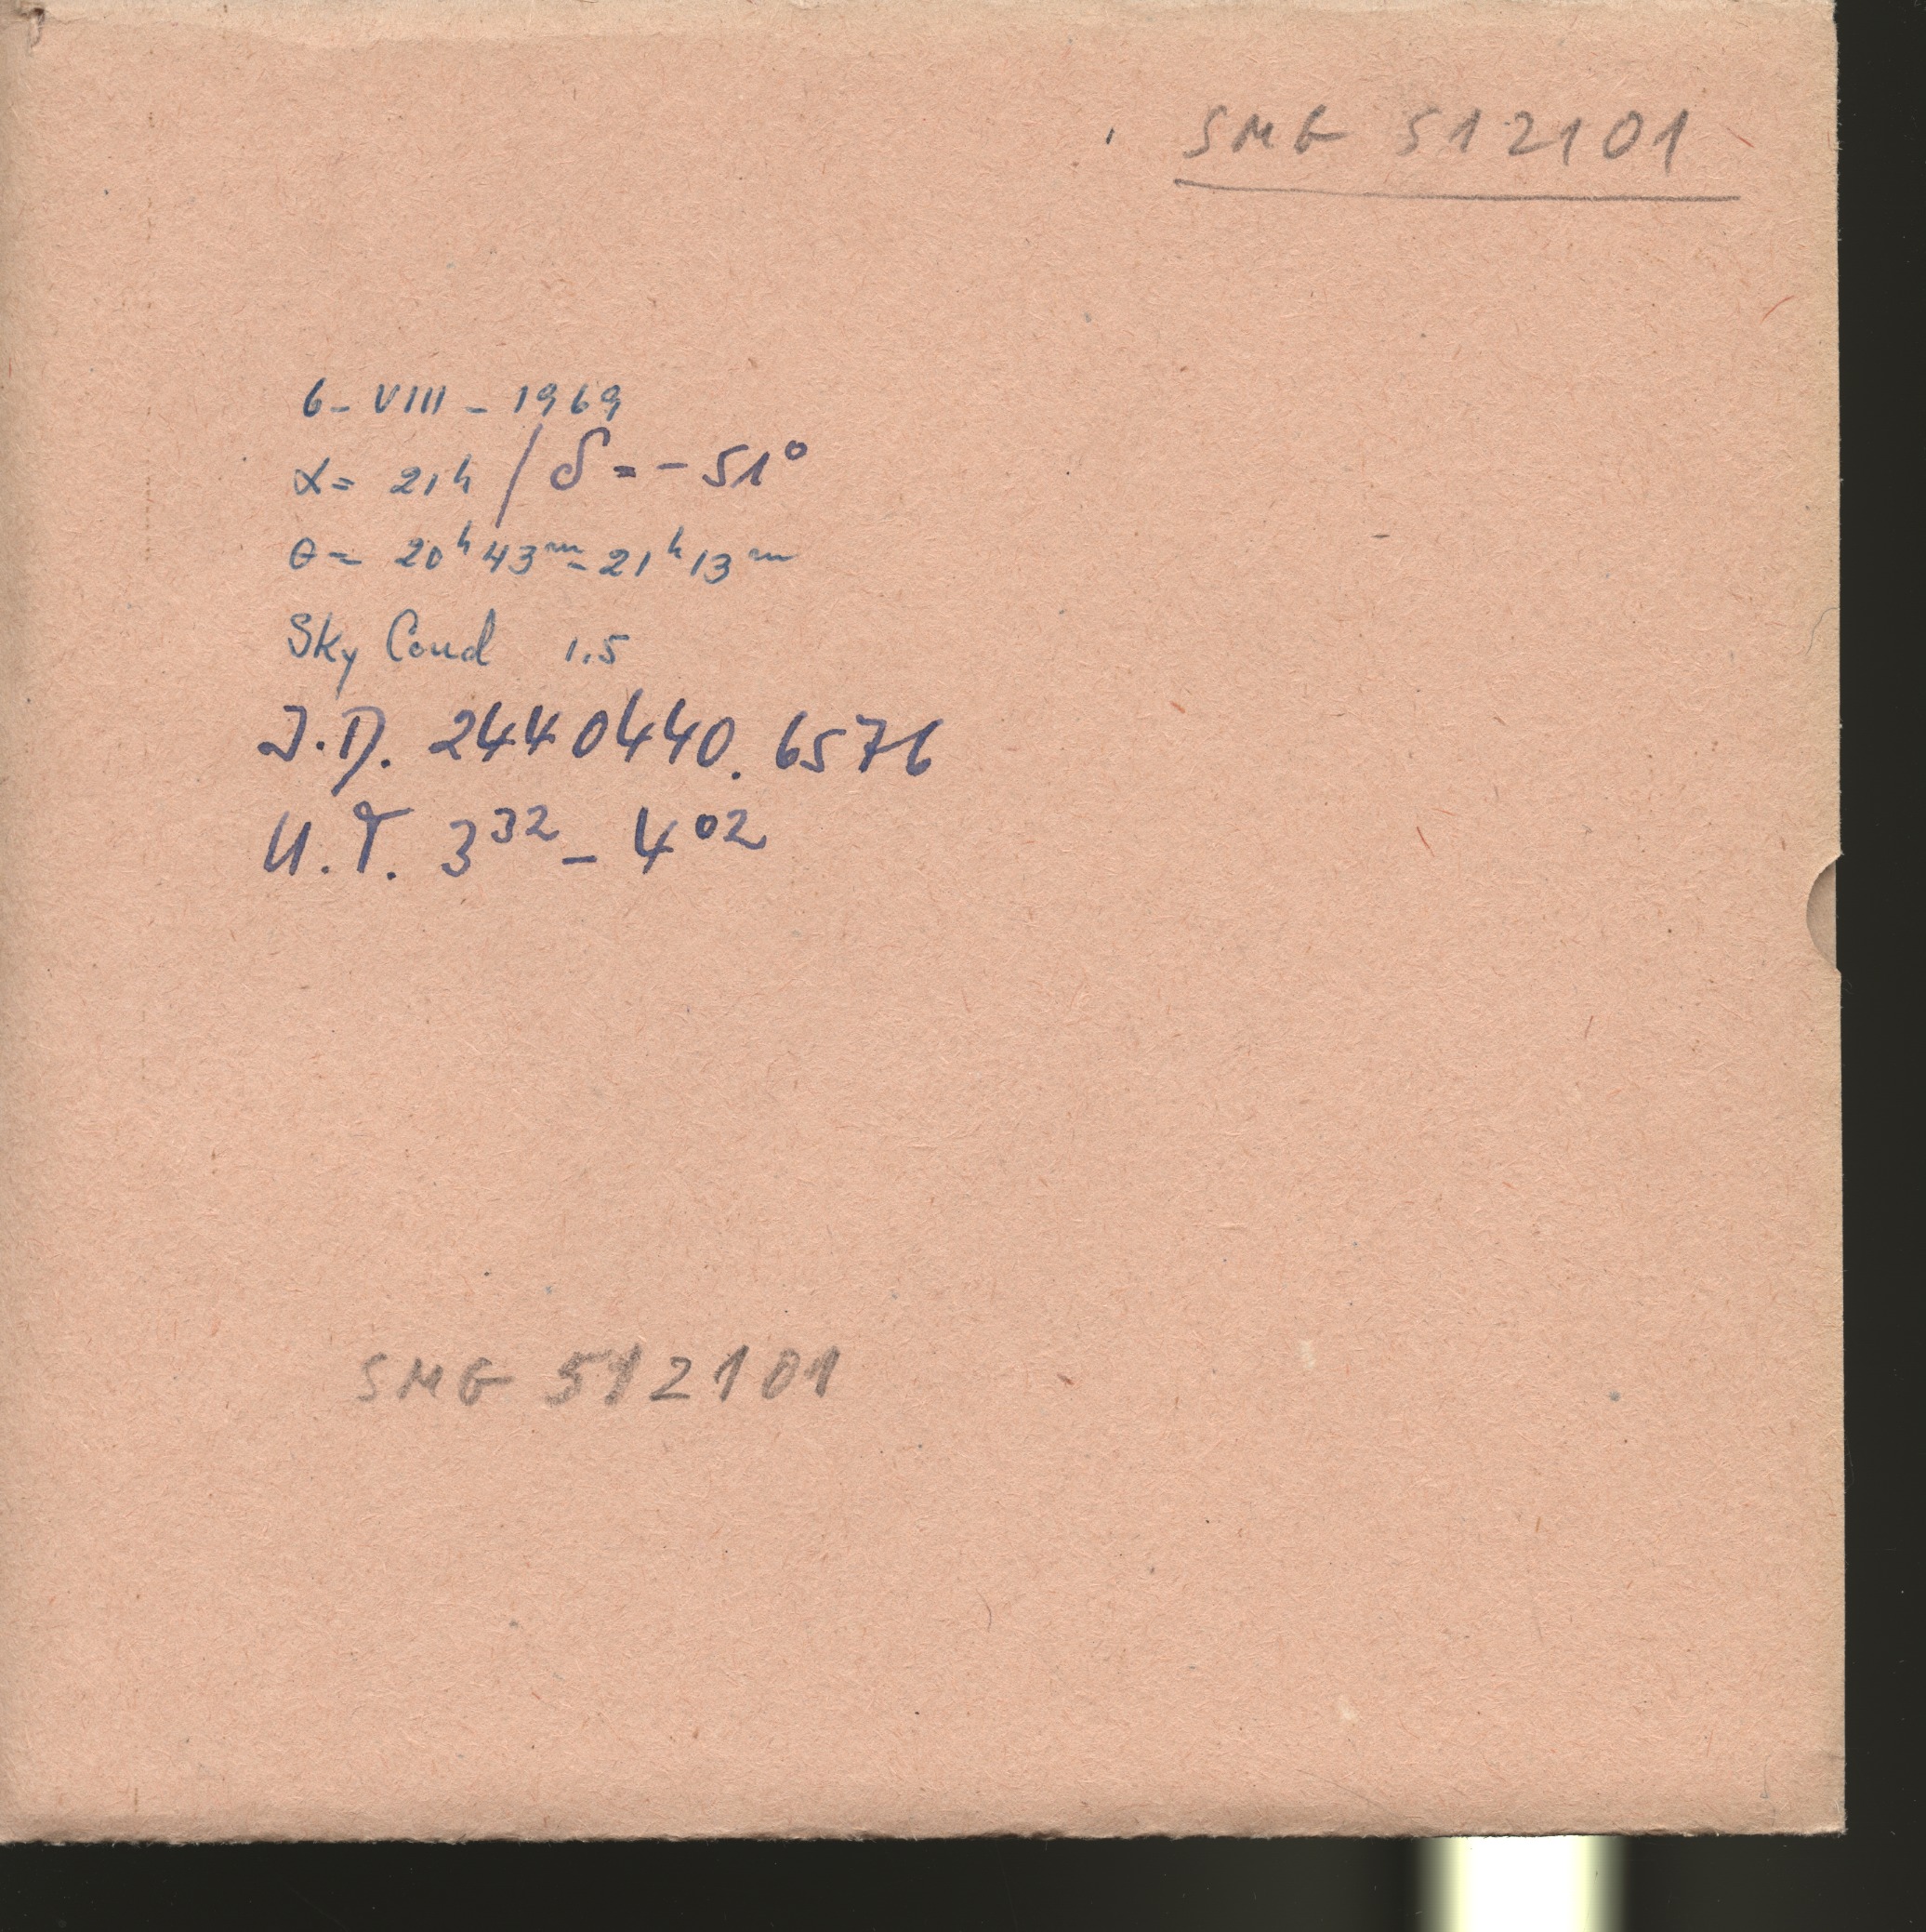 SMG 512101
6 - VIII - 1969
α = 21h / δ = - 51°
θ = 20ʰ 43ᵐ - 21ʰ 13ᵐ
Sky Cond 1.5
J.D. 2440440.6576
U.T. 3³² - 4⁰²
SMG 512101